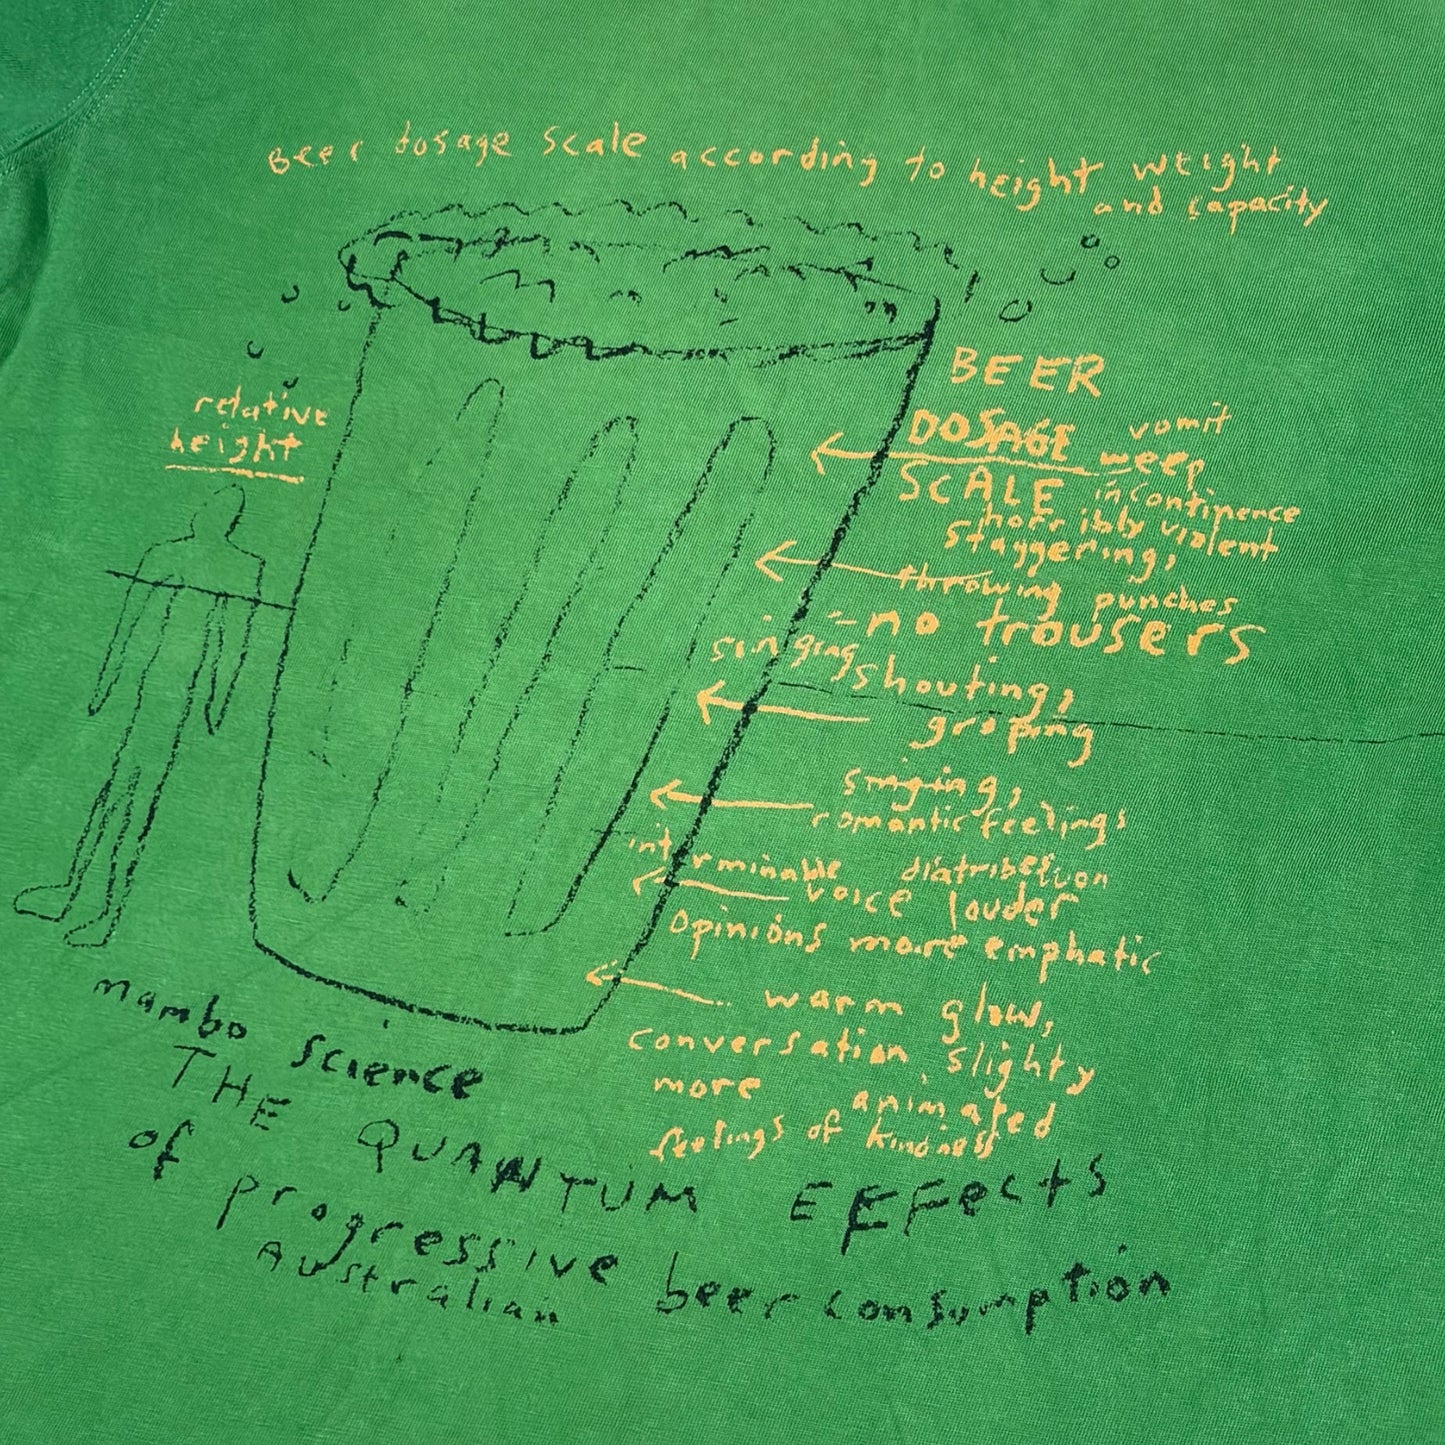 Beer dosage scale according to height weight
and capacity
relative
height
BEER
DOSAGE
SCALE
vomit
weep
incontinence
horribly violent
staggering,
throwing punches
- no trousers
singing shouting,
groping
singing,
romantic feelings
interminable diatribe
voice louder
opinions more emphatic
warm glow,
conversation slighty
more animated
feelings of kindness
mambo science
THE QUANTUM EFFects
of progressive beer consumption
Australian